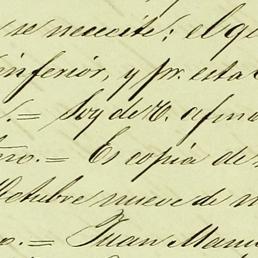 se necesite; el qu
inferior, y pr. esta
.= Soy de V. afmo
tro.= Es copia de
Octubre nueve de m
o.= Juan Manu